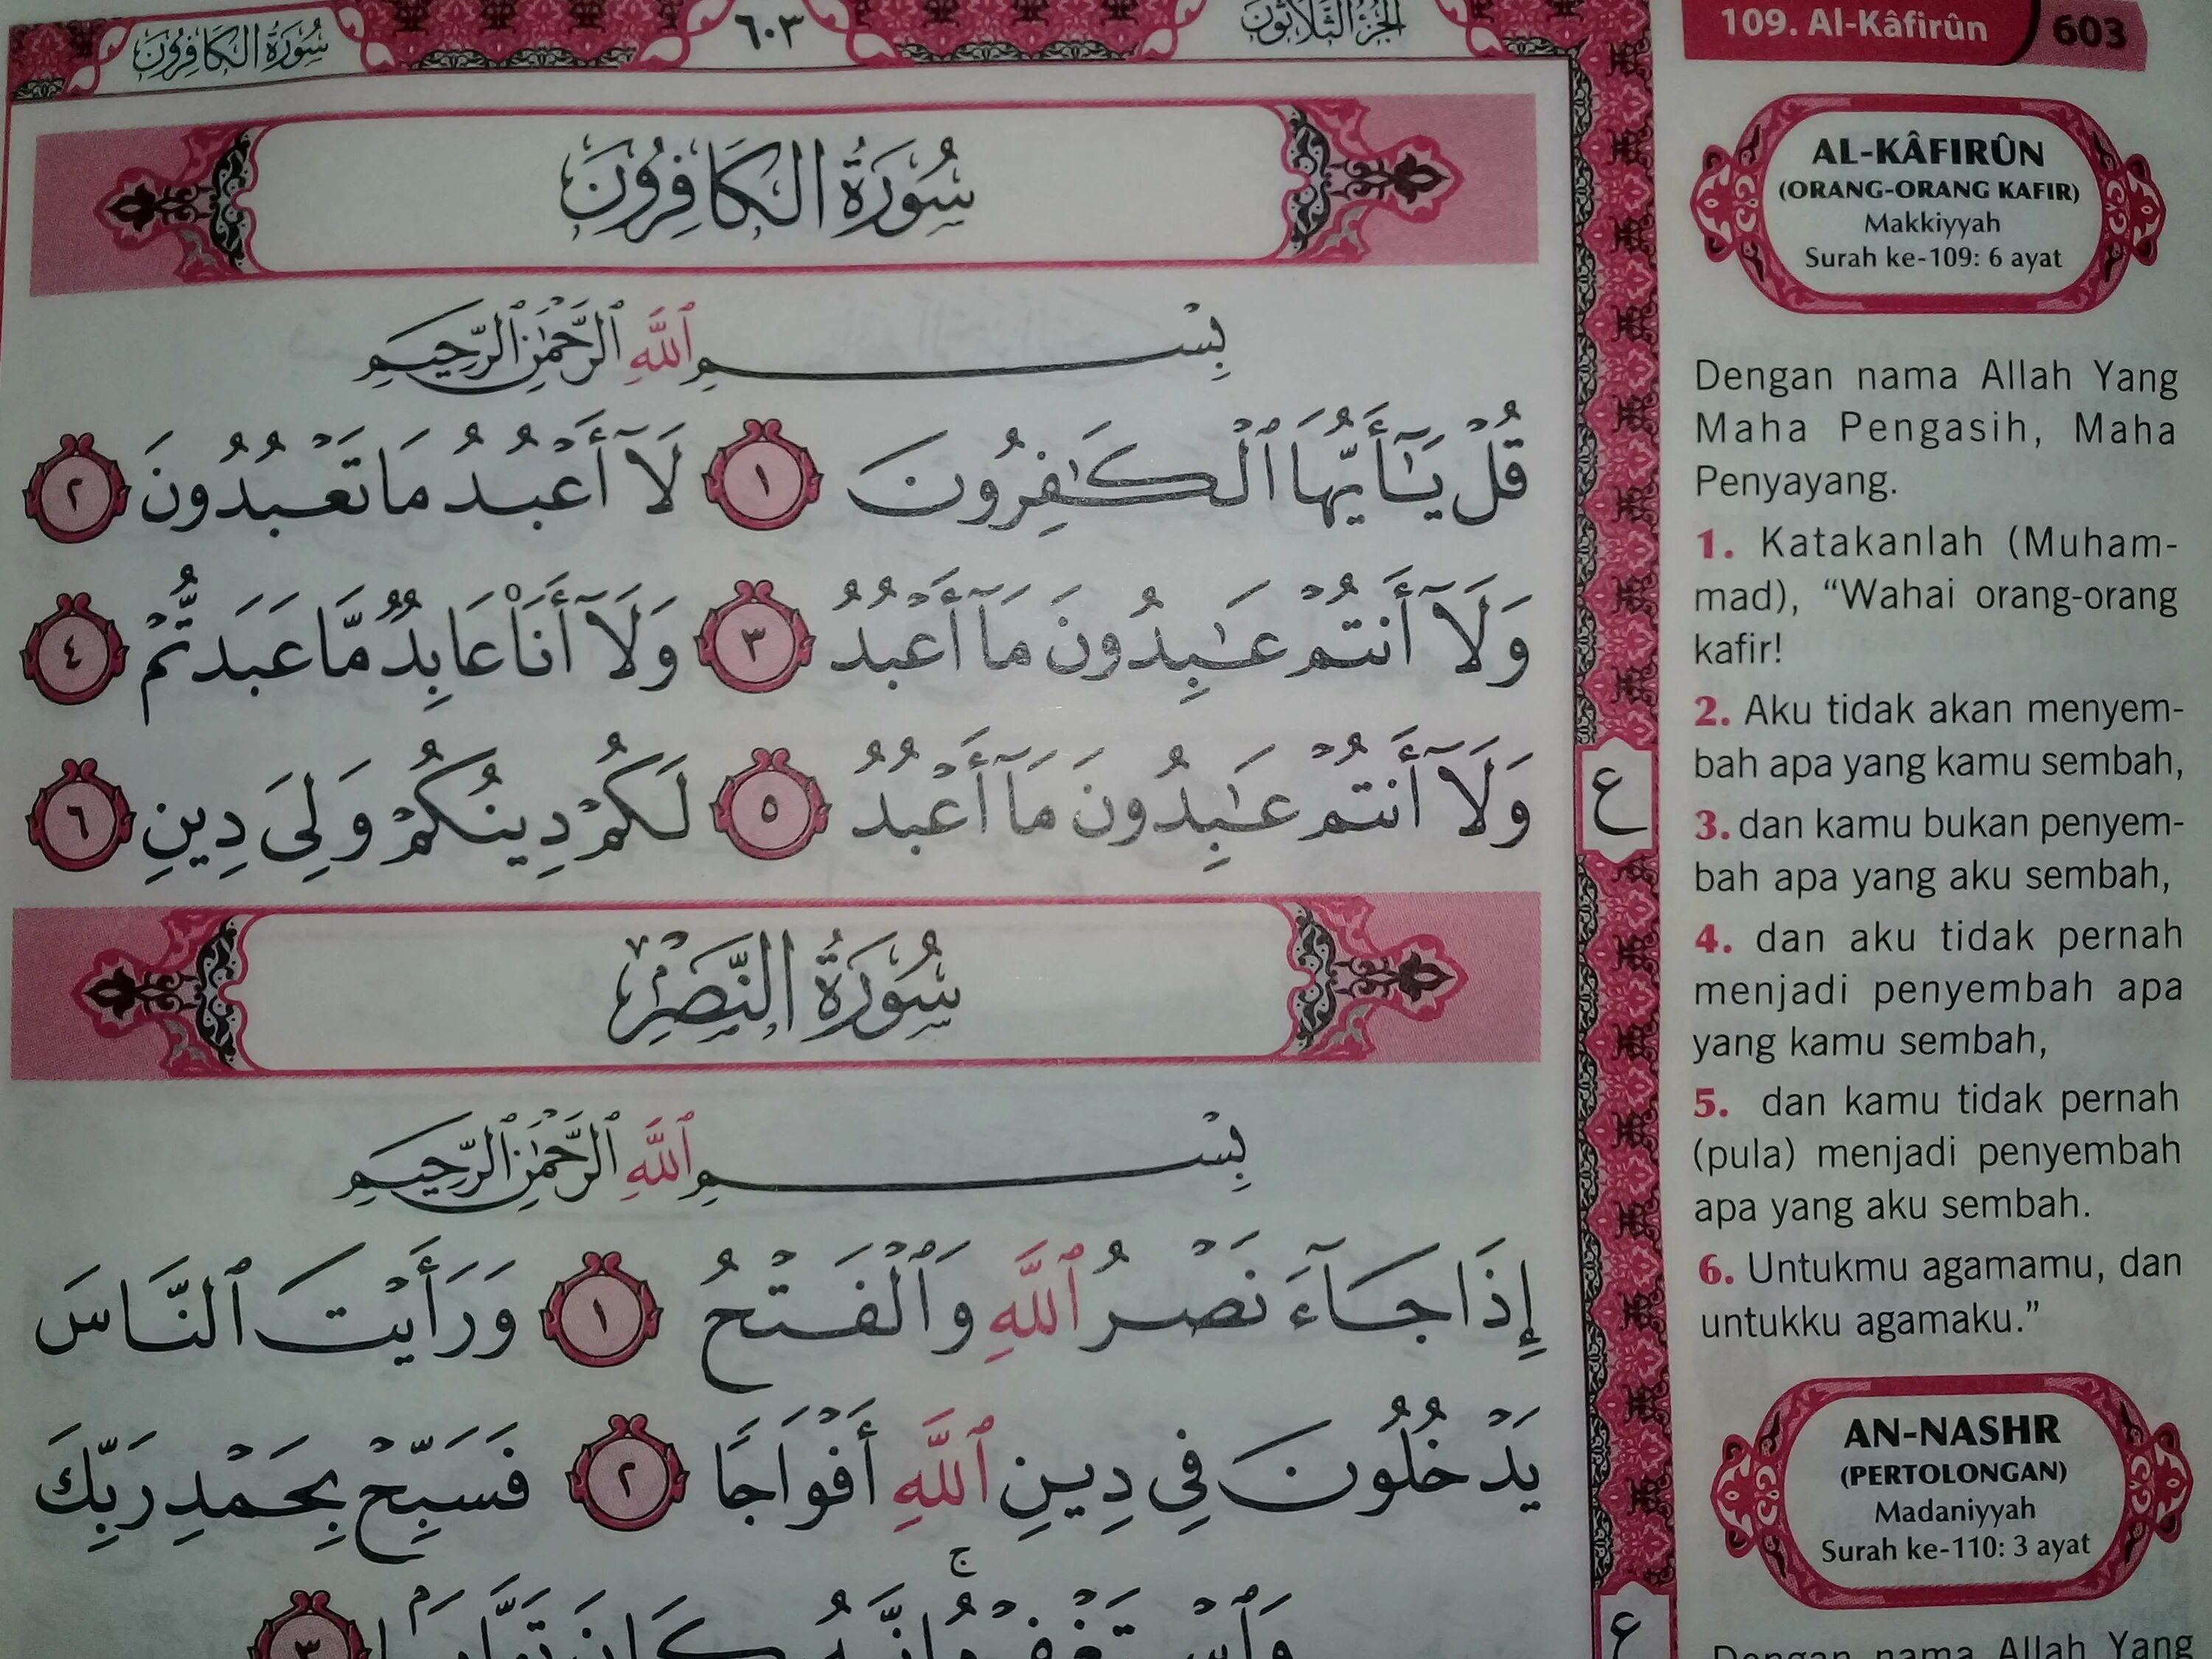 سُورَةُ الكَافِرُونَ
٦٠٣
الجُزْءُ الثَّلَاثُونَ
109. Al-Kâfirûn
603
سُورَةُ الكَافِرُونَ
بِسْمِ ٱللَّهِ ٱلرَّحْمَٰنِ ٱلرَّحِيمِ
قُلْ يَٰٓأَيُّهَا ٱلْكَٰفِرُونَ ١ لَآ أَعْبُدُ مَا تَعْبُدُونَ ٢
وَلَآ أَنتُمْ عَٰبِدُونَ مَآ أَعْبُدُ ٣ وَلَآ أَنَا۠ عَابِدٌ مَّا عَبَدتُّمْ ٤
وَلَآ أَنتُمْ عَٰبِدُونَ مَآ أَعْبُدُ ٥ لَكُمْ دِينُكُمْ وَلِىَ دِينِ ٦
ع
سُورَةُ النَّصْرِ
بِسْمِ ٱللَّهِ ٱلرَّحْمَٰنِ ٱلرَّحِيمِ
إِذَا جَآءَ نَصْرُ ٱللَّهِ وَٱلْفَتْحُ ١ وَرَأَيْتَ ٱلنَّاسَ
يَدْخُلُونَ فِى دِينِ ٱللَّهِ أَفْوَاجًا ٢ فَسَبِّحْ بِحَمْدِ رَبِّكَ
وَٱسْتَغْفِرْهُ ۚ إِنَّهُۥ كَانَ تَوَّابًۢا ٣
ع
AL-KÂFIRÛN
(ORANG-ORANG KAFIR)
Makkiyyah
Surah ke-109: 6 ayat
Dengan nama Allah Yang
Maha Pengasih, Maha
Penyayang.
1. Katakanlah (Muham-
mad), “Wahai orang-orang
kafir!
2. Aku tidak akan menyem-
bah apa yang kamu sembah,
3. dan kamu bukan penyem-
bah apa yang aku sembah,
4. dan aku tidak pernah
menjadi penyembah apa
yang kamu sembah,
5. dan kamu tidak pernah
(pula) menjadi penyembah
apa yang aku sembah.
6. Untukmu agamamu, dan
untukku agamaku.”
AN-NASHR
(PERTOLONGAN)
Madaniyyah
Surah ke-110: 3 ayat
Dengan nama Allah Yang